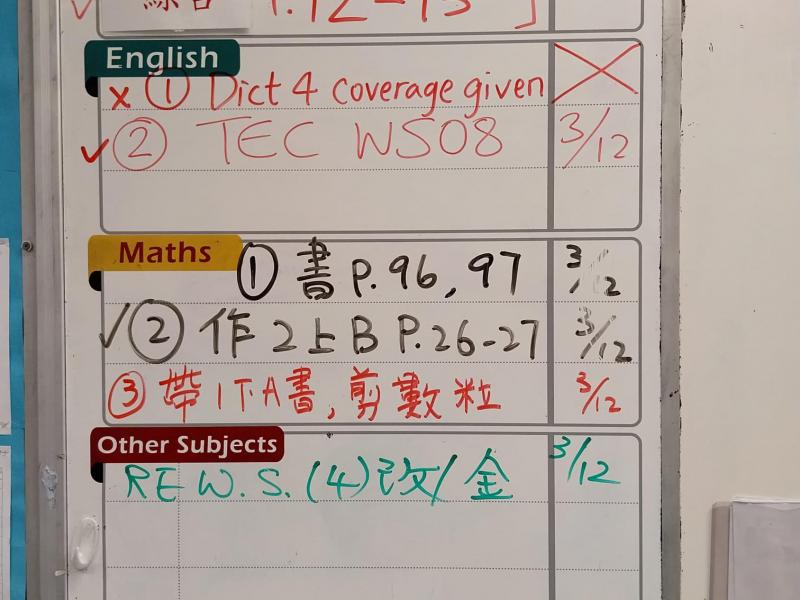 English
x ① Dict 4 coverage given
✓ ② TEC WS08 3/12
Maths
① 書 P.96, 97 3/12
✓ ② 作 2上B P.26-27 3/12
③ 帶1下A書, 剪數粒 3/12
Other Subjects
RE W.S. (4) 改/金 3/12